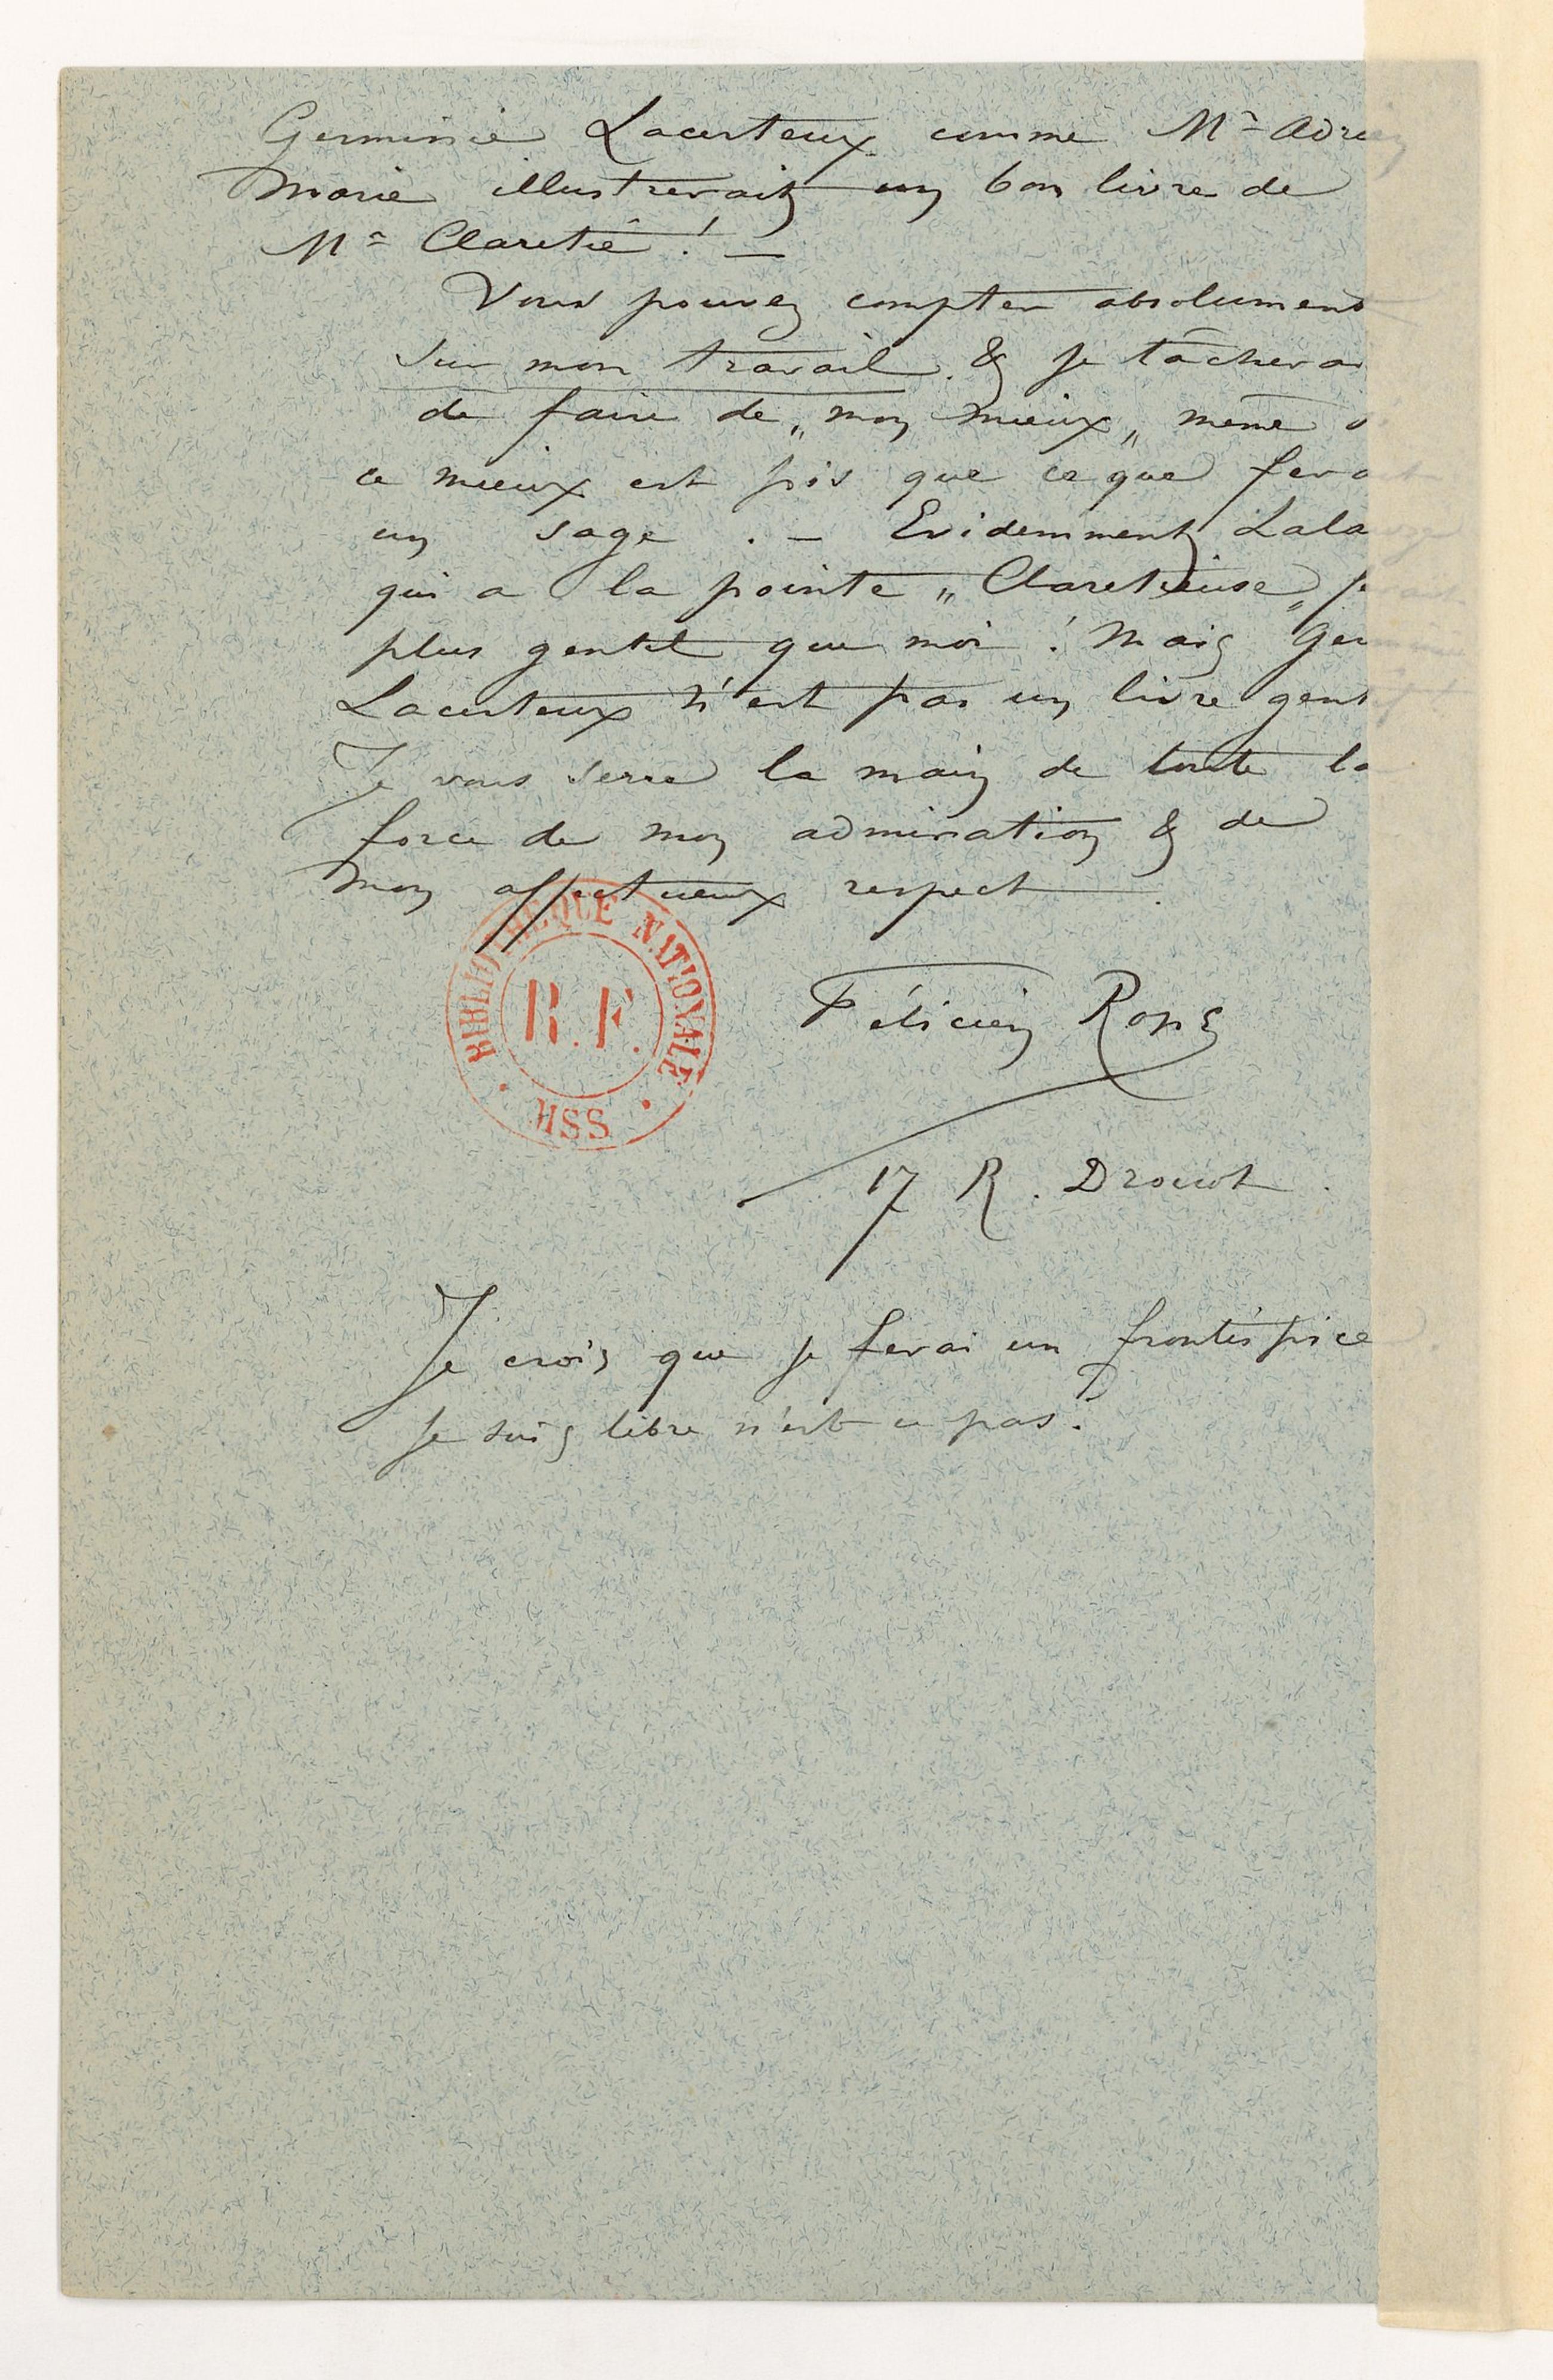 Germinie Lacerteux comme Mr Adrien
Marie illustrerait un bon livre de
Mr Claretie ! —
Vous pouvez compter absolument
sur mon travail. & je tâcherai
de faire de „mon mieux„ même si
ce mieux est pis que ce que ferait
un sage . — Evidemment Lalauze
qui a la pointe „Claretieuse„ serait
plus gentil que moi ! Mais Germinie
Lacerteux n'est pas un livre gentil !
Je vous serre la main de toute la
force de mon admiration & de
mon affectueux respect .
Félicien Rops
17 R. Drouot .
Je crois que je ferai un frontispice
Je suis libre n'est ce pas ?
BIBLIOTHÈQUE NATIONALE
R.F.
MSS